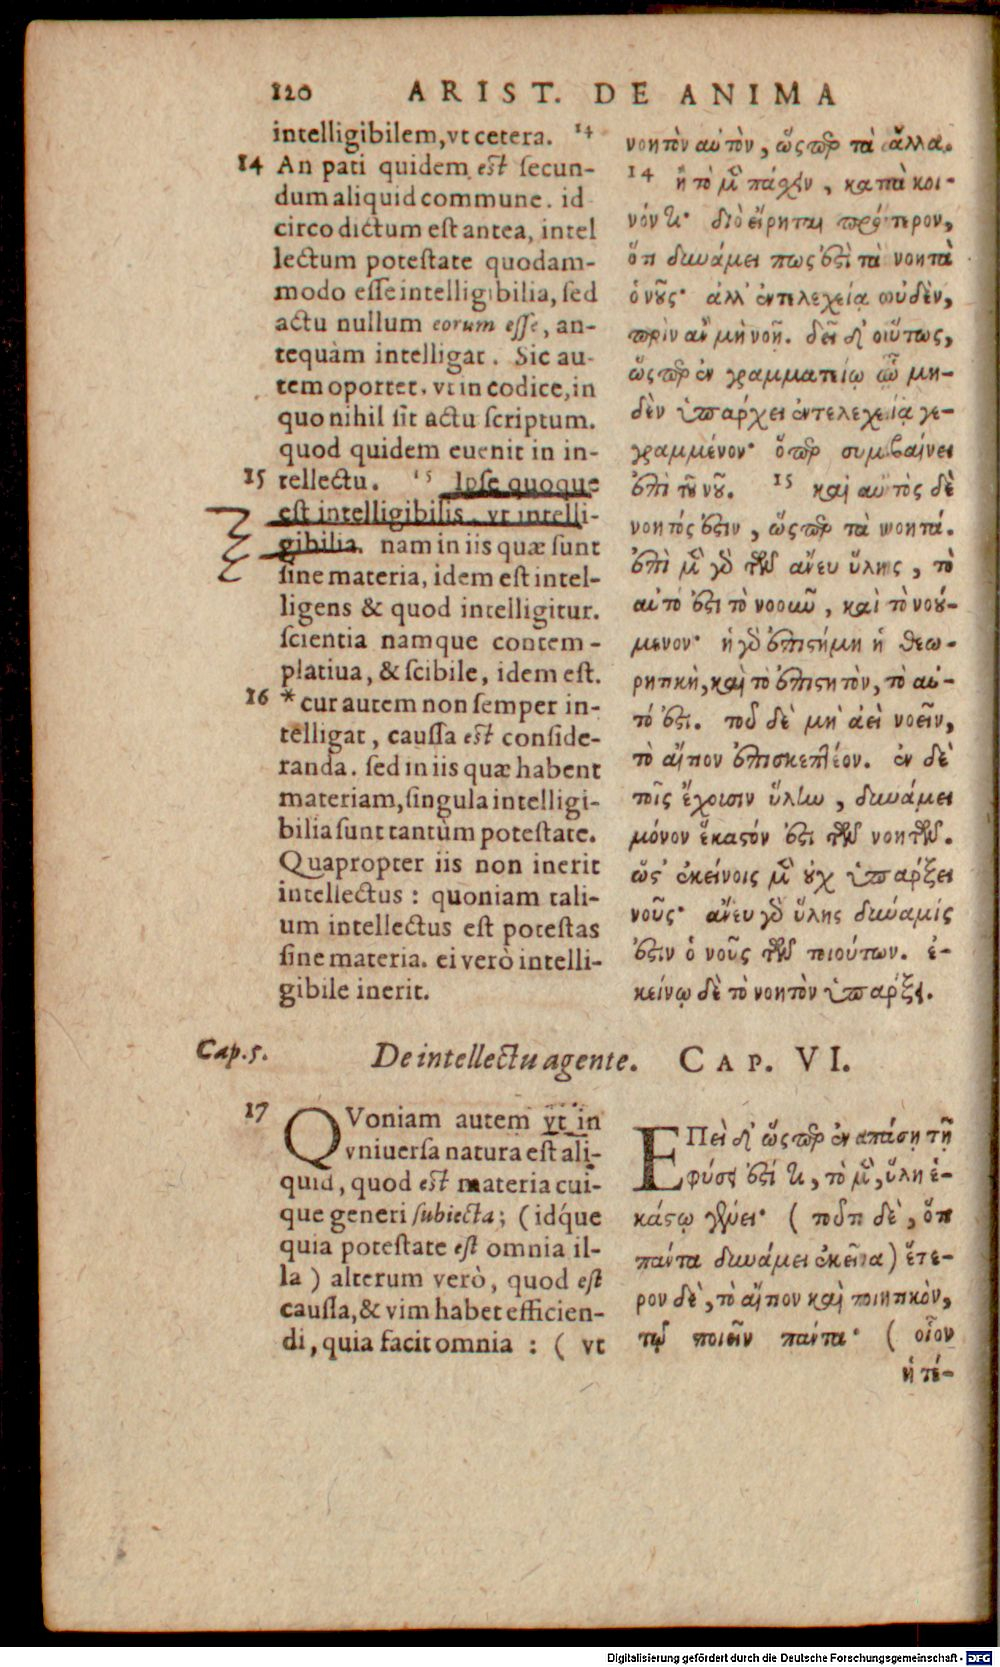 120 ARIST. DE ANIMA
intelligibilem, vt cetera. 14
14 An pati quidem est secun-
dum aliquid commune. id
circo dictum est antea, intel
lectum potestate quodam-
modo esse intelligibilia, sed
actu nullum eorum esse, an-
tequàm intelligat. Sic au-
tem oportet, vt in codice, in
quo nihil sit actu scriptum.
quod quidem euenit in in-
15 tellectu. 15 Ipse quoque
est intelligibilis, vt intelli-
gibilia. nam in iis quæ sunt
sine materia, idem est intel-
ligens & quod intelligitur.
scientia namque contem-
platiua, & scibile, idem est.
16 * cur autem non semper in-
telligat, caussa est conside-
randa. sed in iis quæ habent
materiam, singula intelligi-
bilia sunt tantùm potestate.
Quapropter iis non inerit
intellectus: quoniam tali-
um intellectus est potestas
sine materia. ei verò intelli-
gibile inerit.
νοητὸν αὐτὸν, ὥσπερ τὰ ἄλλα.
14 ἢ τὸ μὲν πάχειν, κατὰ κοι-
νόν τι· διὸ εἴρηται πρότερον,
ὅτι δυνάμει πως ἐστὶ τὰ νοητὰ
ὁ νοῦς· ἀλλ' ἐντελεχείᾳ οὐδὲν,
πρὶν ἂν μὴ νοῇ. δεῖ δ' οὕτως,
ὥσπερ ἐν γραμματείῳ ᾧ μη-
δὲν ὑπάρχει ἐντελεχείᾳ γε-
γραμμένον· ὅπερ συμβαίνει
ἐπὶ τοῦ νοῦ. 15 καὶ αὐτὸς δὲ
νοητός ἐστιν, ὥσπερ τὰ νοητά.
ἐπὶ μὲν γὸ τῶν ἄνευ ὕλης, τὸ
αὐτό ἐστι τὸ νοοῦν, καὶ τὸ νού-
μενον· ἡ γὸ ἐπιστήμη ἡ θεω-
ρητικὴ, καὶ τὸ ἐπιστητὸν, τὸ αὐ-
τό ἐστι. τοῦ δὲ μὴ ἀεὶ νοεῖν,
τὸ αἴτιον ἐπισκεπτέον. ἐν δὲ
τοῖς ἔχουσιν ὕλην, δυνάμει
μόνον ἕκαστόν ἐστι τῶν νοητῶν.
ὥστ' ἐκείνοις μὲν οὐχ ὑπάρξει
νοῦς· ἄνευ γὸ ὕλης δύναμίς
ἐστιν ὁ νοῦς τῶν τοιούτων. ἐ-
κείνῳ δὲ τὸ νοητὸν ὑπάρξει.
Cap. 5. De intellectu agente. CAP. VI.
17 QVoniam autem vt in
vniuersa natura est ali-
quid, quod est materia cui-
que generi subiecta; (idq́ue
quia potestate est omnia il-
la) alterum verò, quod est
caussa, & vim habet efficien-
di, quia facit omnia: (vt
ΕΠεὶ δ' ὥσπερ ἐν ἁπάσῃ τῇ
φύσει ἐστί τι, τὸ μὲν, ὕλη ἑ-
κάστῳ γένει· (τοῦτο δὲ, ὅτι
πάντα δυνάμει ἐκεῖνα) ἕτε-
ρον δὲ, τὸ αἴτιον καὶ ποιητικὸν,
τῷ ποιεῖν πάντα· (οἷον
ἡ τέ-
Digitalisierung gefördert durch die Deutsche Forschungsgemeinschaft - DFG